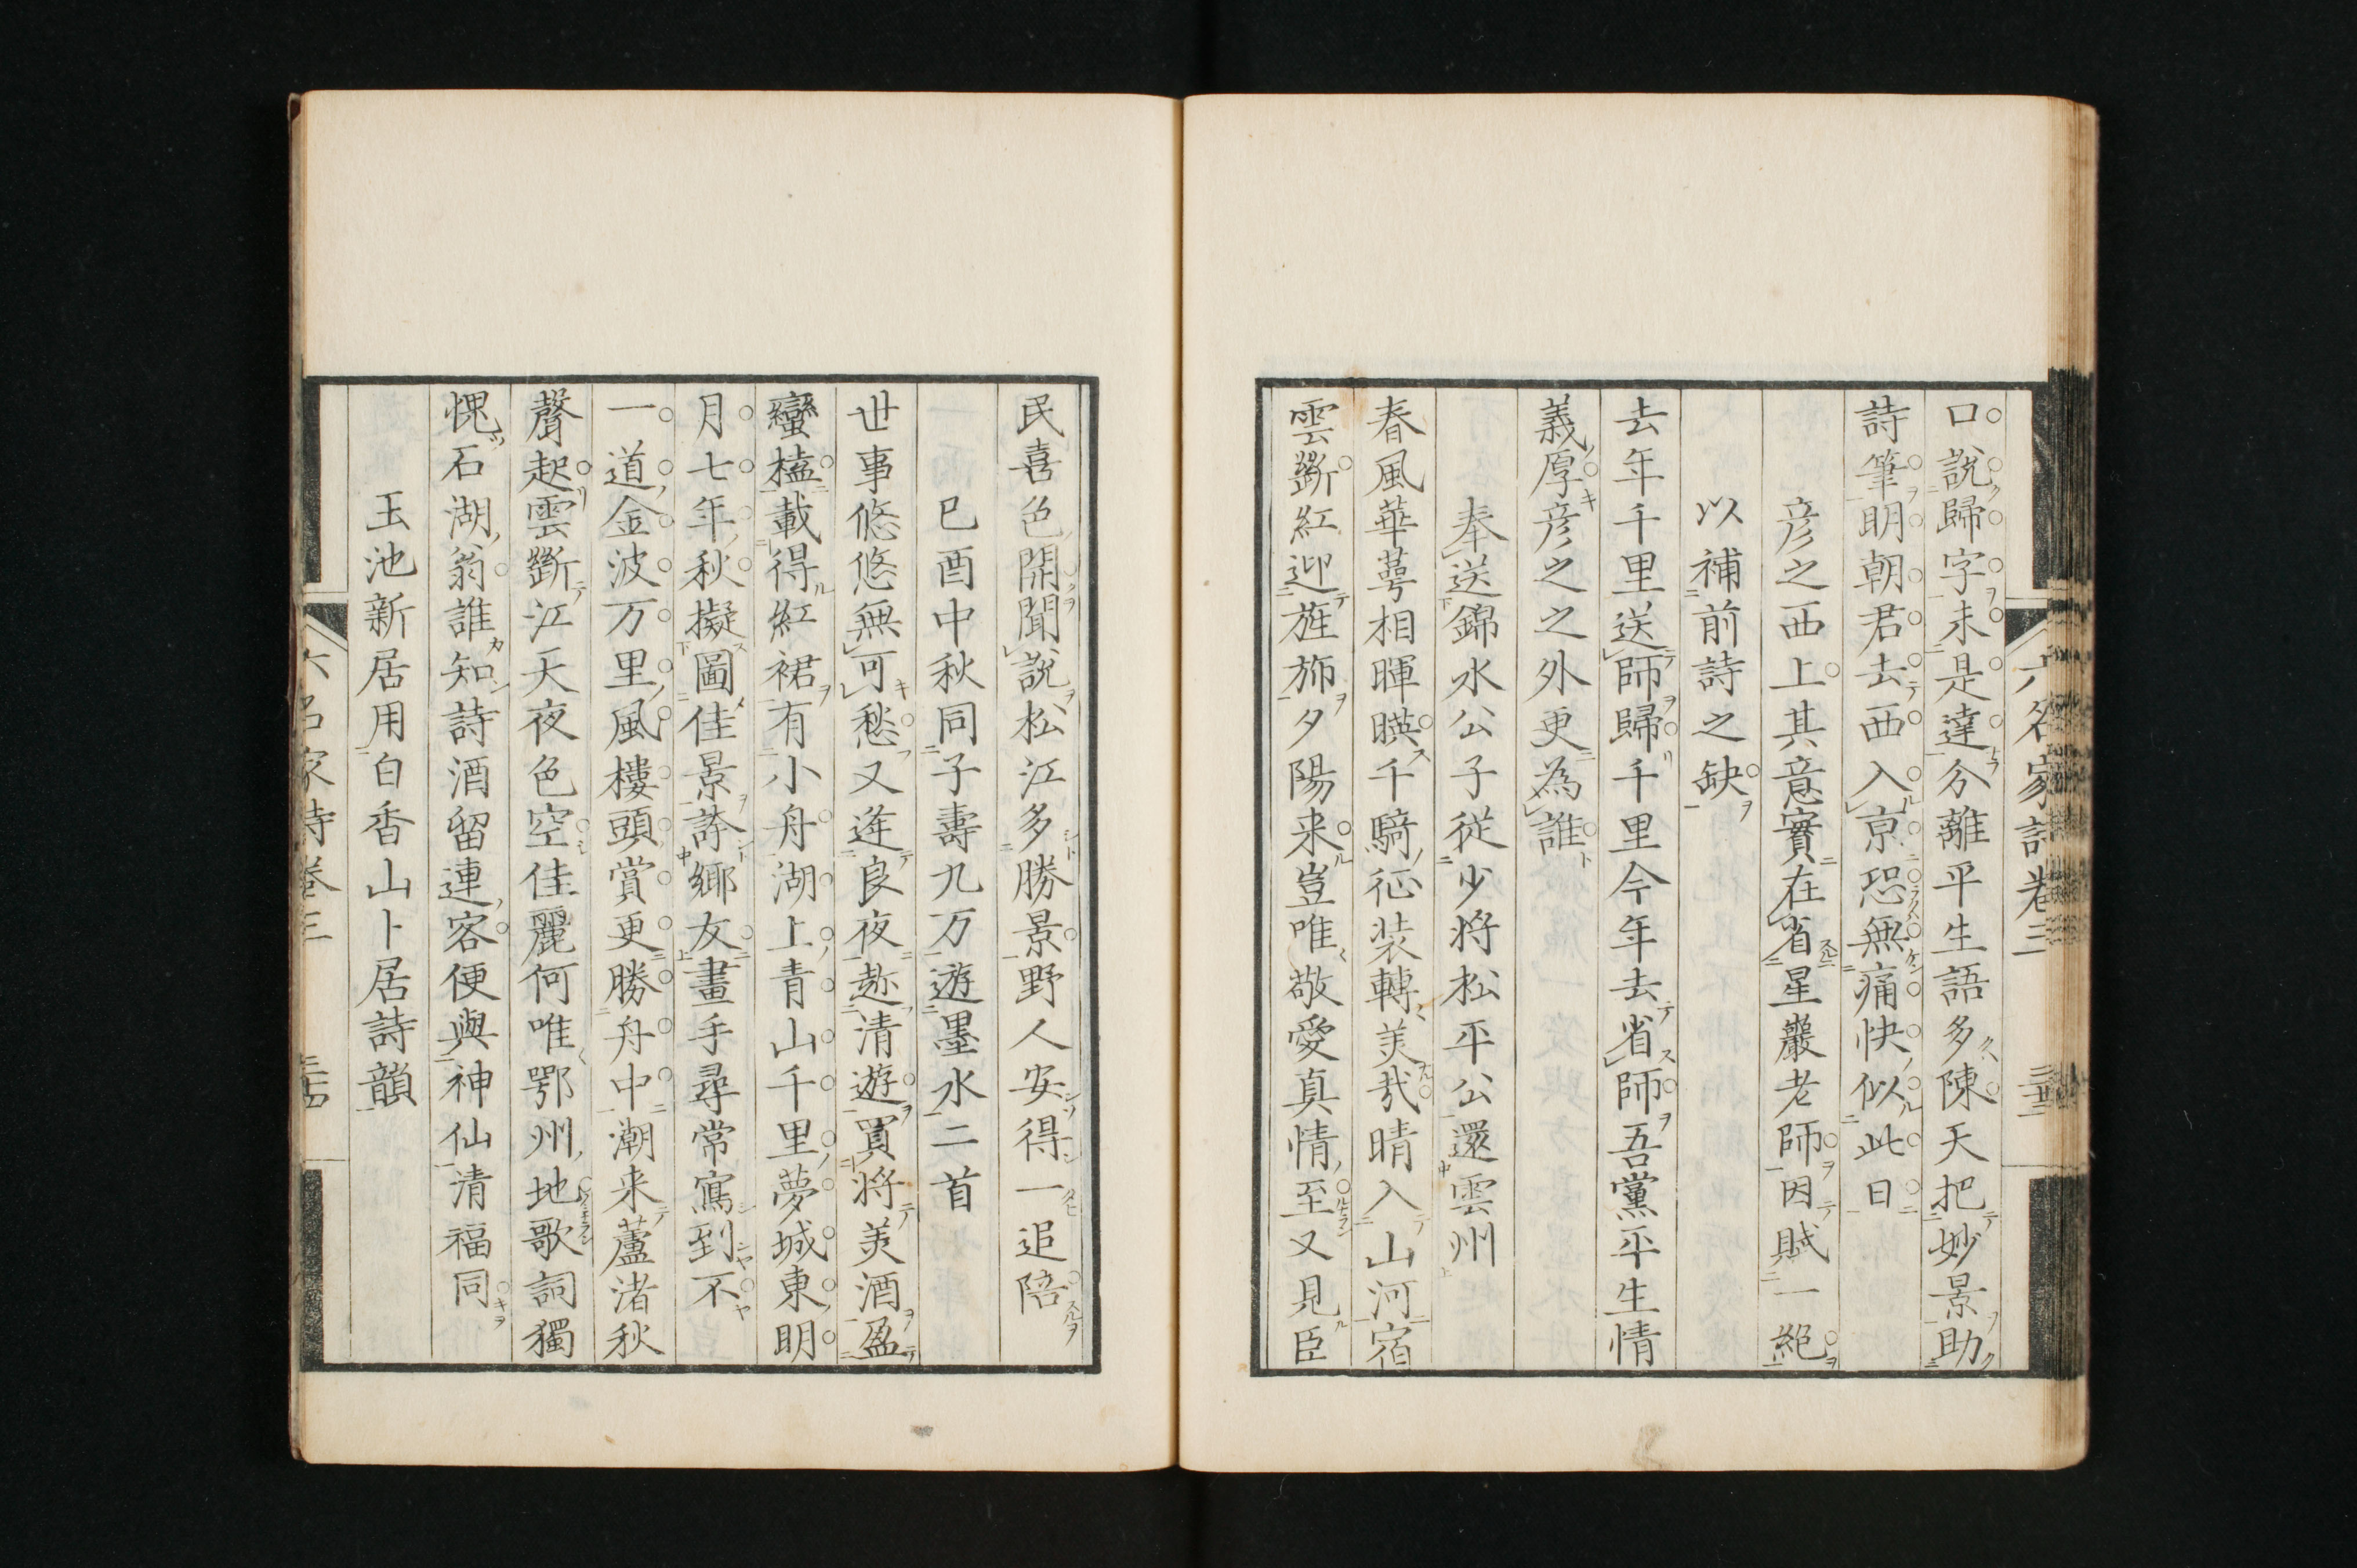 六名家詩巻三
三十三
口說歸字未是達分離平生語多陳天把妙景助
詩筆明朝君去西入京恐無痛快似此日
彦之西上其意實在省星巖老師因賦一絕
以補前詩之缺
去年千里送師歸千里今年去省師吾黨平生情
義厚彦之之外更為誰
奉送錦水公子従少将松平公還雲州
春風華萼相暉暎千騎征装轉美哉晴入山河宿
雲斷紅迎旌斾夕陽来豈唯敬愛真情至又見臣
民喜色開聞說松江多勝景野人安得一追陪
巳酉中秋同子壽九万遊墨水二首
世事悠悠無可愁又逢良夜趂清遊買将美酒盈
蠻榼載得紅裙有小舟湖上青山千里夢城東明
月七年秋擬圖佳景誇鄉友畫手尋常寫到不
一道金波万里風樓頭賞更勝舟中潮来蘆渚秋
聲起雲斷江天夜色空佳麗何唯鄂州地歌詞獨
愧石湖翁誰知詩酒留連客便與神仙清福同
玉池新居用白香山卜居詩韻
六名家詩巻三
三十四